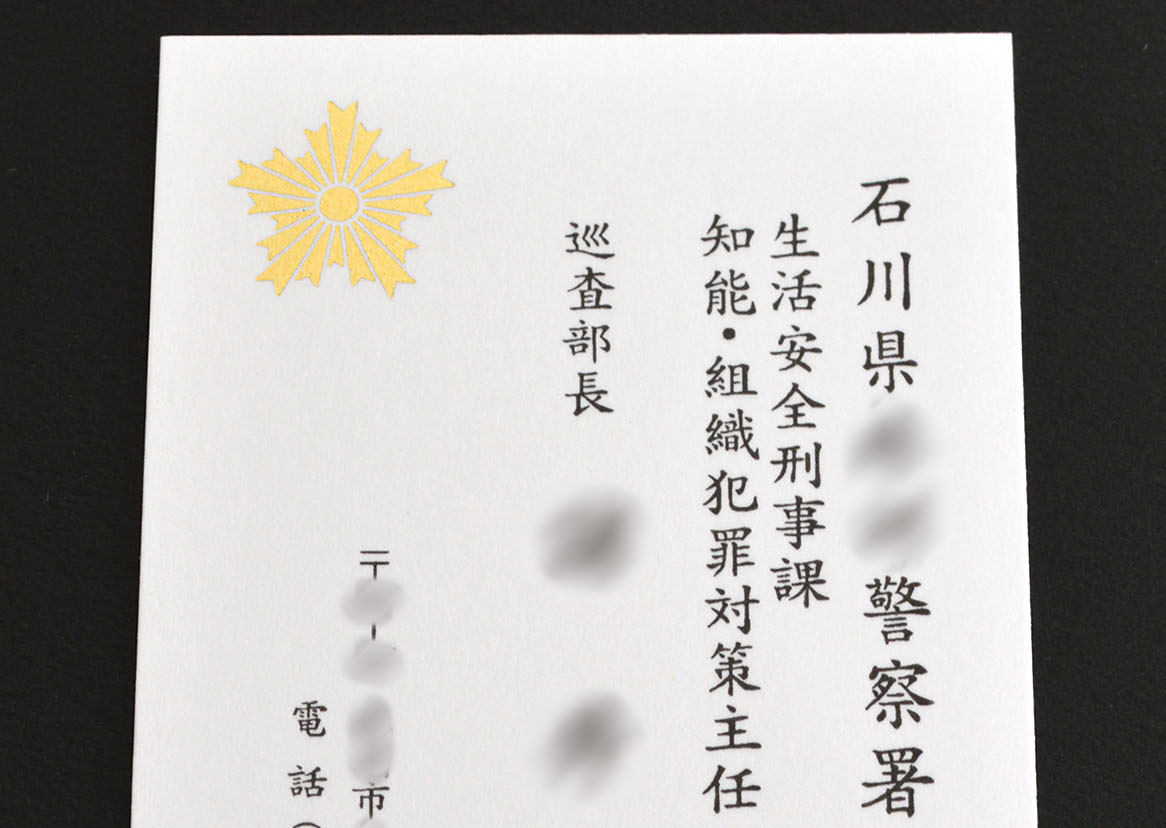 石川県警察署
生活安全刑事課
知能・組織犯罪対策主任
巡査部長
〒 - 市
電話(